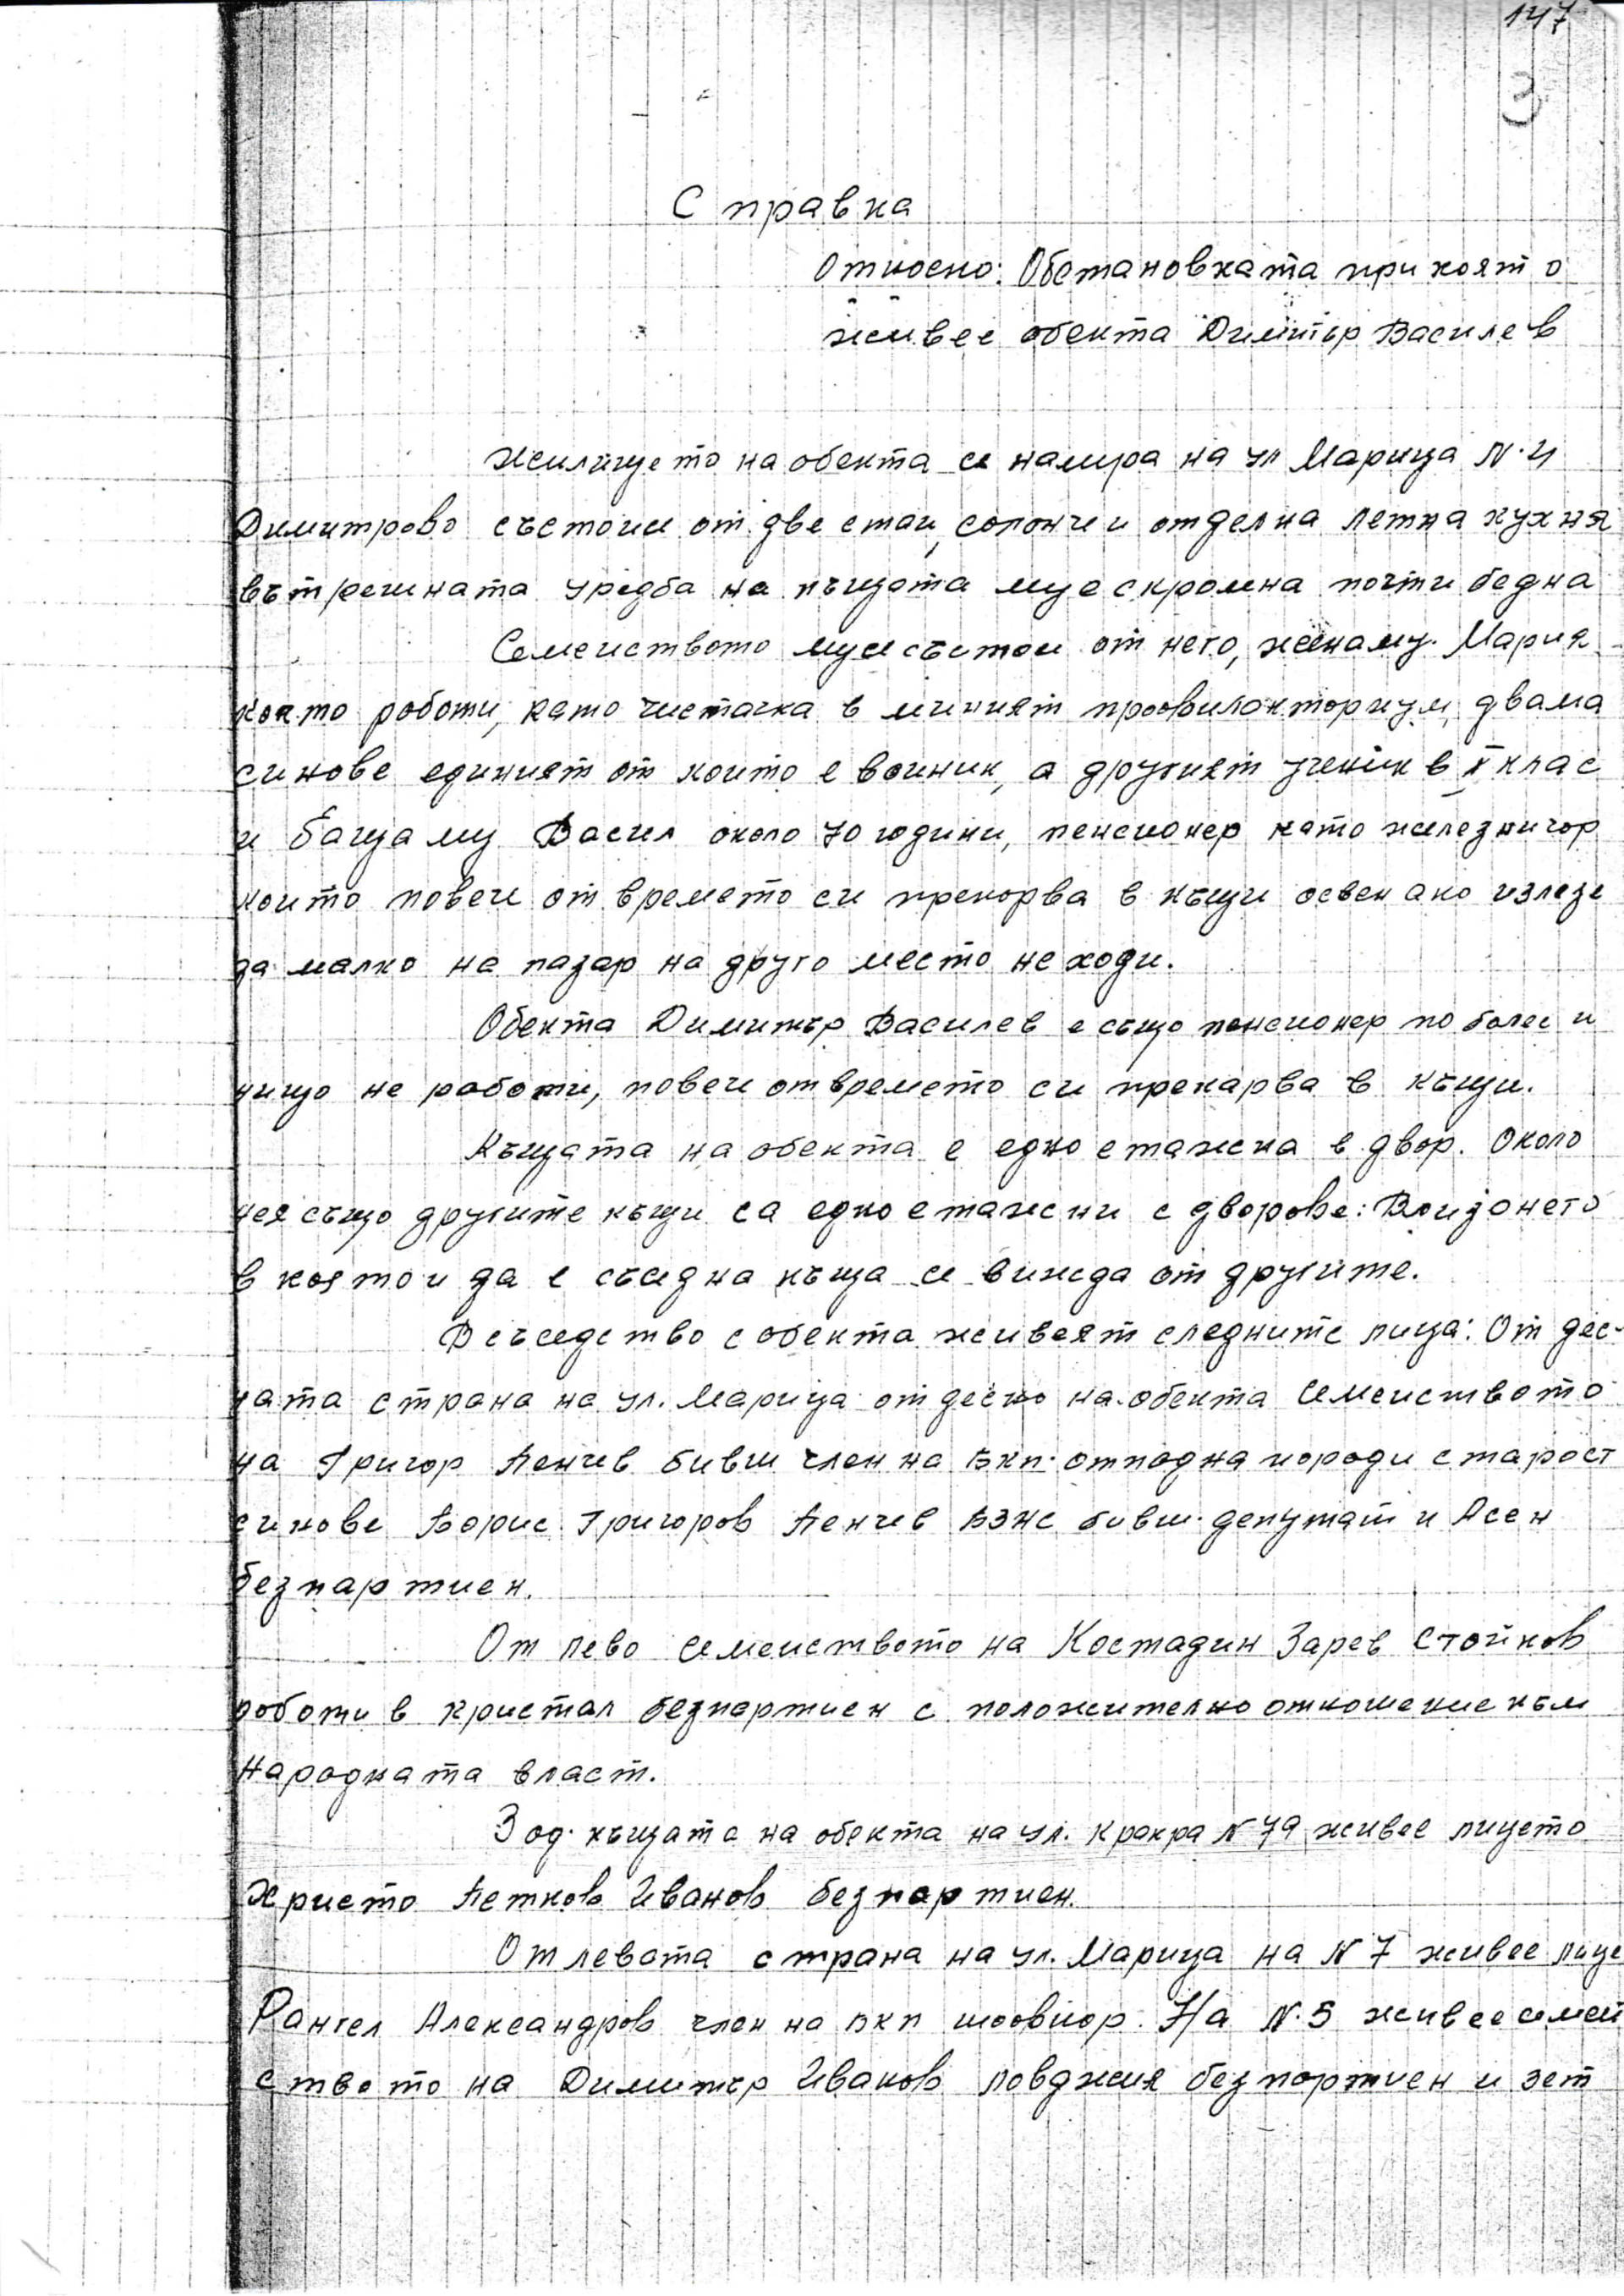 147
3
Справка
Относно: Обстановката при която
живее обекта Димитър Василев
Жилището на обекта се намира на ул Марица N. 4
Димитрово състои се от две стаи, солонче и отделна летна кухня
вътрешната уредба на къщата му е скромна почти бедна
Семеиството му се състои от него, жена му. Мария
която работи, като чистачка в миният профилакториум, двама
синове единият от които е воиник, а другият ученик в X клас
и баща му Васил около 70 години, пенсионер като железничар
който повече от времето си прекарва в къщи освен ако излезе
за малко на пазар на друго место не ходи.
Обекта Димитър Василев е също пенсионер по болес и
нищо не работи, повече от времето си прекарва в къщи.
Къщата на обекта е едно етажна в двор. Около
нея също другите къщи са едно етажни с дворове: Влизането
в която и да е съседна къща се вижда от другите.
В съседство с обекта живеят следните лица: От дес-
ната страна на ул. Марица от десно на обекта Семеиството
на Григор Пенчев бивш член на БКП. отпадна поради старост
синове Борис Григоров Пенчев БЗНС бивш депутат и Асен
безпартиен.
От лево Семеиството на Костадин Зарев Стойков
работи в кристал безпартиен с положително отношение към
Народната власт.
Зад къщата на обекта на ул. Кракра N 79 живее лицето
Христо Петков Иванов безпартиен.
От левата страна на ул. Марица на N 7 живее лице
Рангел Александров член на БКП шофьор. На N. 5 живее семей
ството на Димитър Иванов ловджия безпартиен и зет